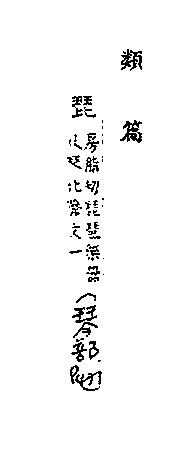 類篇
琵
房脂切琵琶樂器
文一
(琴部